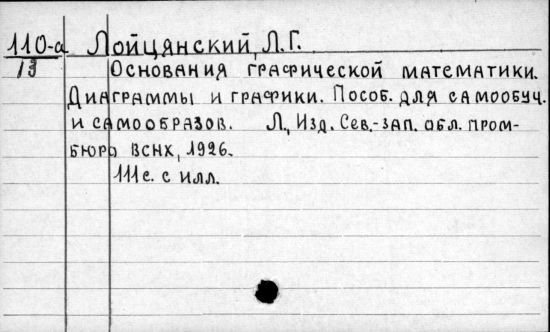 110-а Лойцянский, Л.Г.
13 Основания графической математики.
Диаграммы и графики. Пособ. для самообуч.
и самообразов. Л., Изд. Сев.-зап. обл. пром-
бюро ВСНХ, 1926.
111 с. с илл.